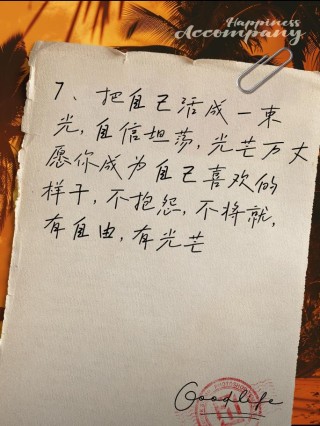 Happiness
Accompany
7、把自己活成一束
光，自信坦荡，光芒万丈
愿你成为自己喜欢的
样子，不抱怨，不将就，
有自由，有光芒
Goodlife